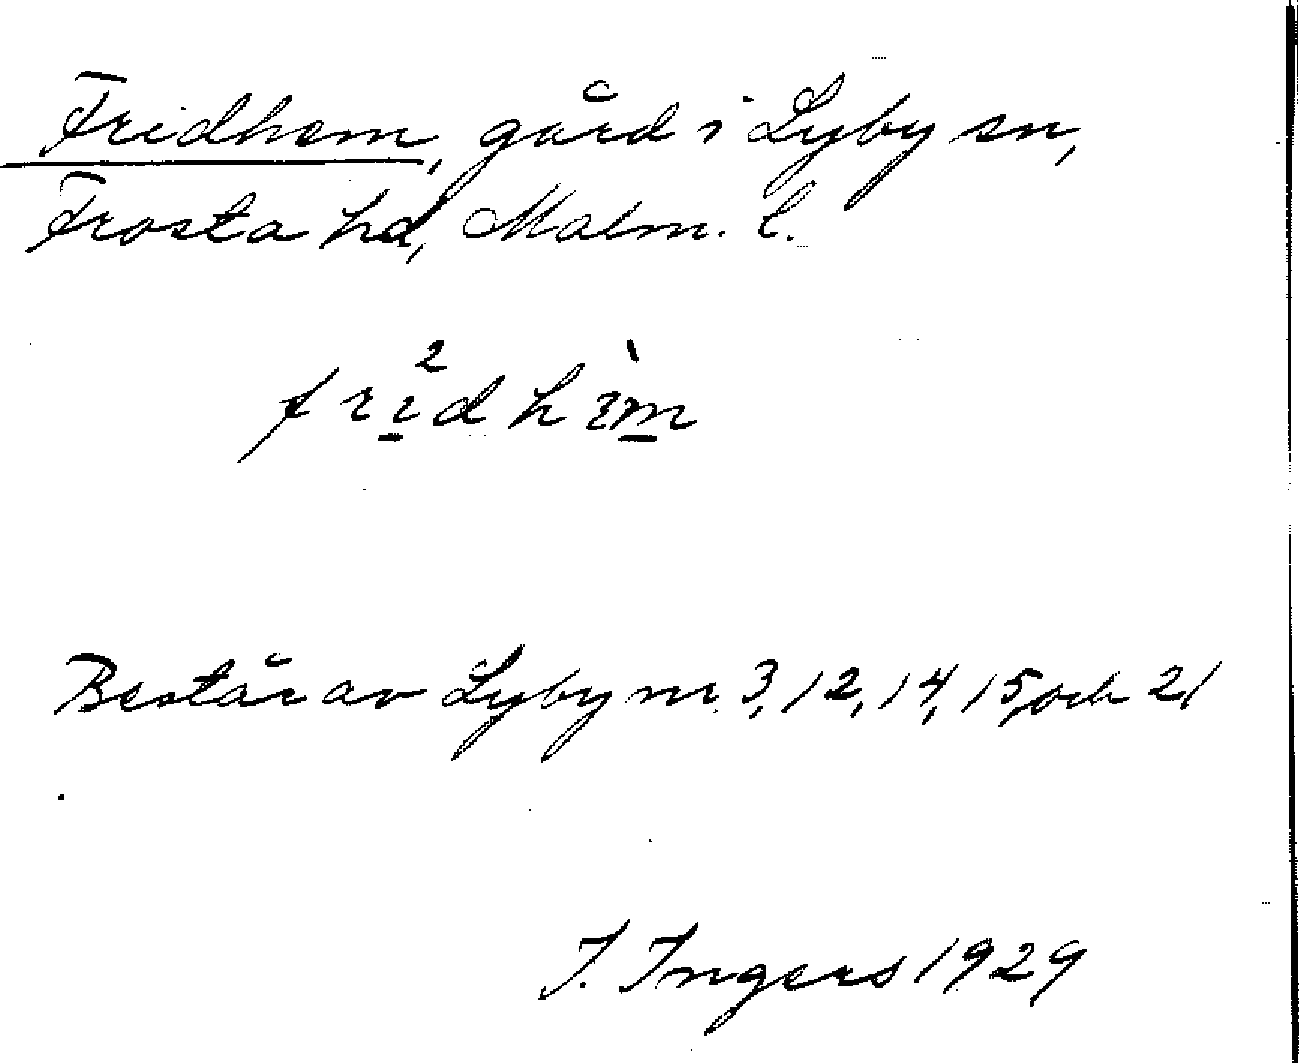 Fridhem, gård i Lyby sn,
Frosta hd, Malm. l.
Består av Lyby nr. 3, 12, 14, 15, och 21
I. Ingers 1929